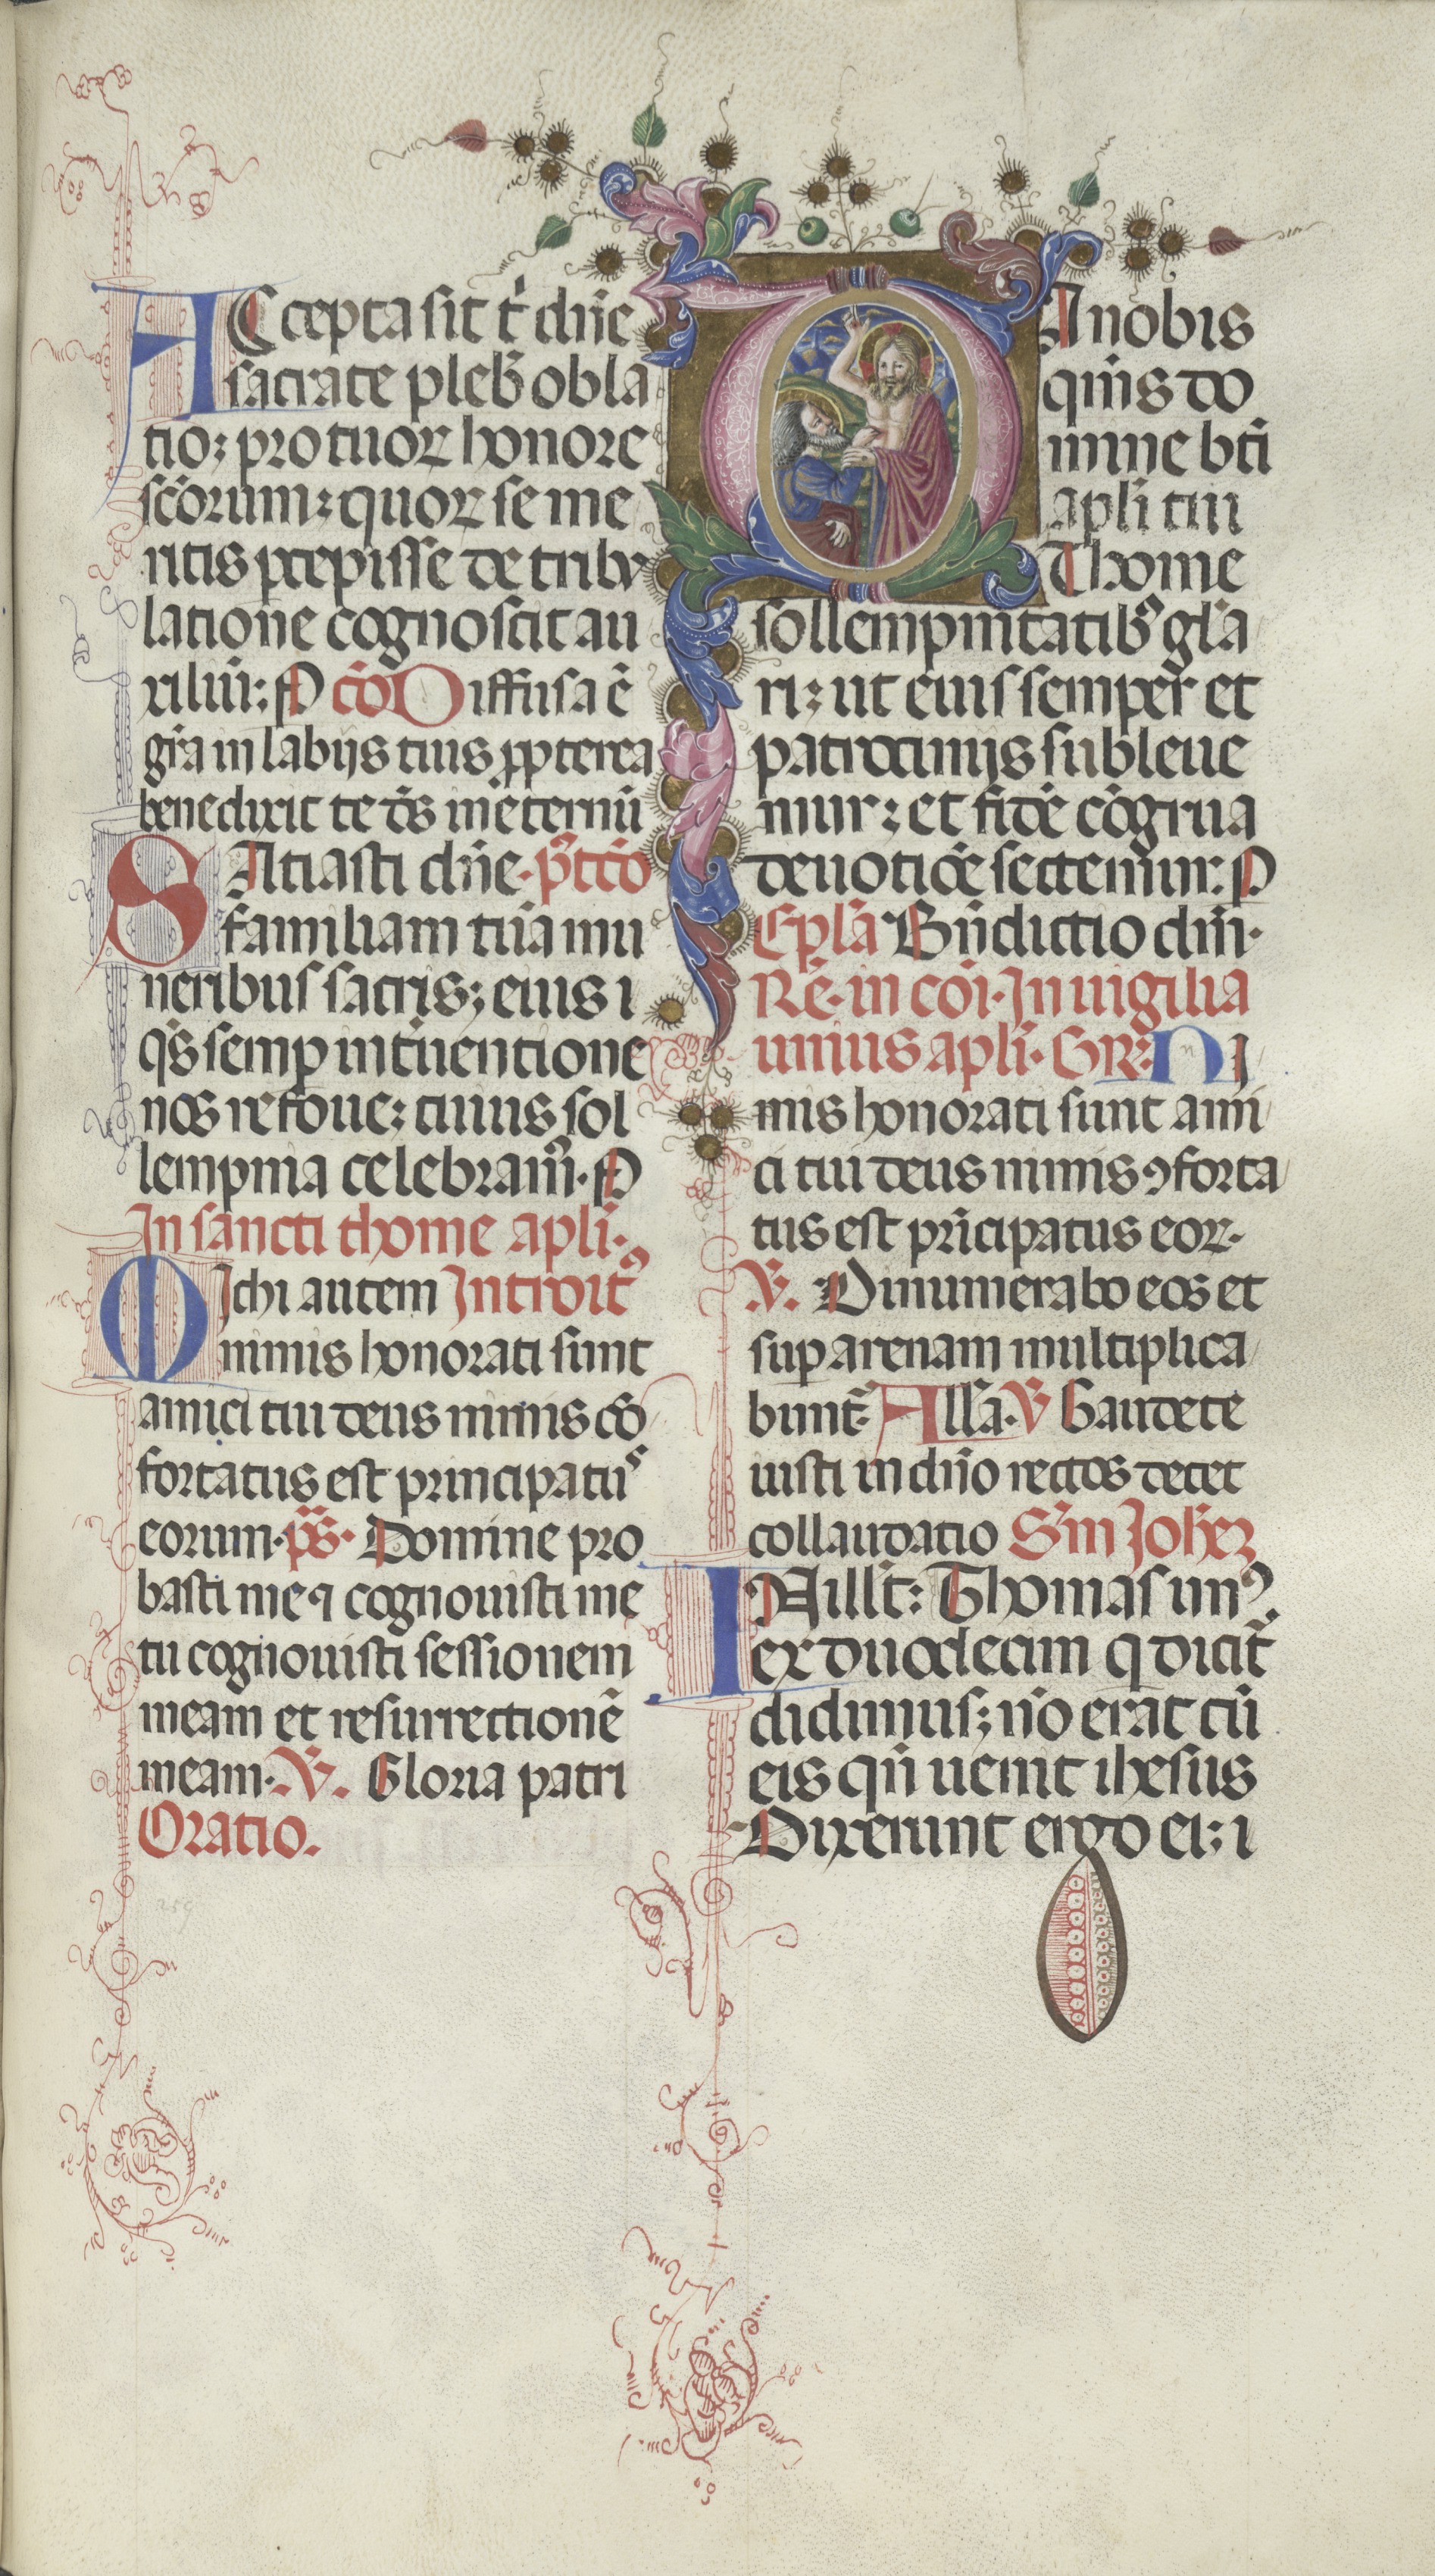 ACcepta sit t̉ dn̄e
sacrate pleb̉ obla
tio: pro tuoꝝ honore
sc̄orum: quoꝝ se me
ritis ꝑcepisse de tribu
latione cognoscit au
xiliū: P cō Diffusa ē
gr̄a in labijs tuis ꝓpterea
benedixit te d̄s in et̄ernū
SAtiasti dn̄e. p̄tcō
familiam tuā mu
neribus sacris; eius i
q̄s semp̲ int̉uentione
nos refoue: cuius sol
lempnia celebram̉. P
In sancti thome apl̄i.
MIchi autem Introit⁹
nimis honorati sunt
amici tui deus nimis cō
fortatus est principatus
eorum. p̄s. Domine pro
basti me ⁊ cognouisti me
tu cognouisti sessionem
meam et resurrectionē
meam. V̉. Gloria patri
Oratio.
DA nobis
qūis do
mine bt̄i
apl̄i tui
Thome
sollempnitatib⁹ gl̄a
ri; ut eius semper et
patrocinijs subleue
mur; et fidē cōgrua
deuotiōe sectemur. P
Epl̄a Bn̄dictio dn̄i.
Re. in cōi. In uigilia
unius apl̄i. GR. NI
mis honorati sunt ami
ci tui deus nimis ꝯforta
tus est prīcipatus eoꝝ.
V̉. Dinumerabo eos et
sup̲ arenam multiplica
bunt̄. All̄a. V̉ Gaudete
iusti in dn̄o rectos decet
collaudatio S̄m Joh̄eꝫ
IN ill̄t: Thomas un⁹
ex duodecim q dicit̄
didimus; nō erat cū
eis qn̄ uenit ihesus
Dixerunt ergo ei; i
259